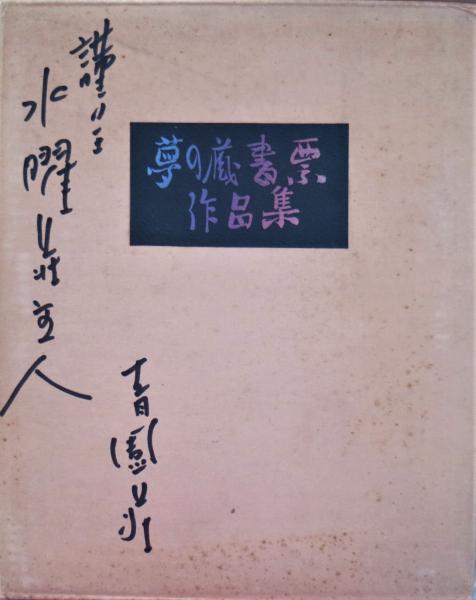 謹呈
水曜荘主人
夢の蔵書票
作品集
青園荘